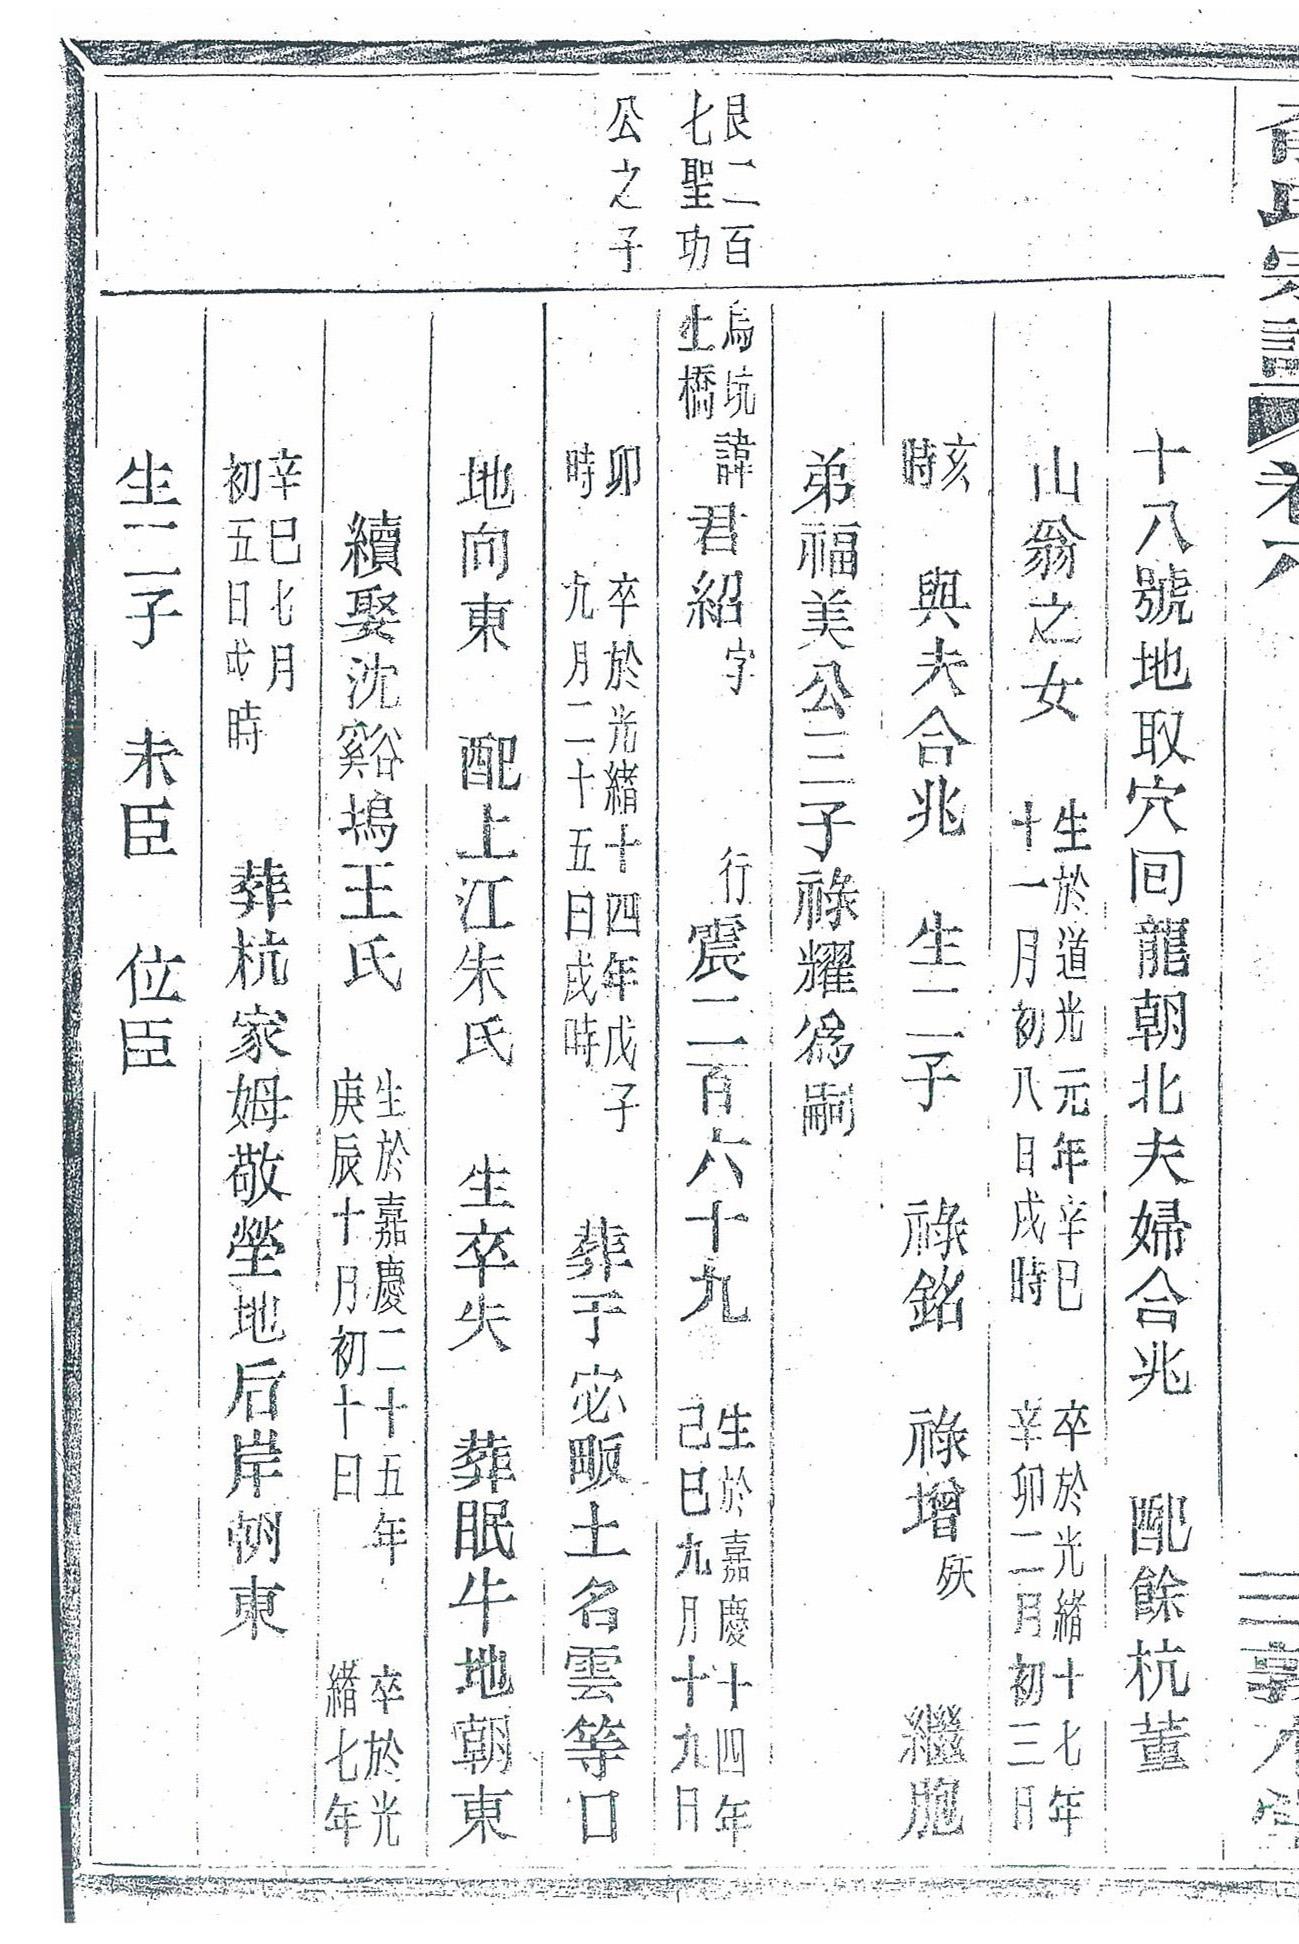 氏宗譜 卷六
十八號地取穴囘龍朝北夫婦合兆 配餘杭董
山翁之女 生於道光元年辛巳十一月初八日戌時 卒於光緒十七年辛卯二月初三日
亥時 與夫合兆 生二子 祿銘 祿增 殀 繼胞
弟福美公三子祿耀為嗣
艮二百七聖功公之子
烏坑土橋 諱君紹 字 行震二百六十九 生於嘉慶十四年己巳九月十九日
卯時 卒於光緒十四年戊子九月二十五日戌時 葬于宓畈土名雲等口
地向東 配上江朱氏 生卒失 葬眠牛地朝東
續娶沈谿塢王氏 生於嘉慶二十五年庚辰十月初十日 卒於光緒七年
辛巳七月初五日戌時 葬杭家姆敬塋地后岸朝東
生二子 未臣 位臣